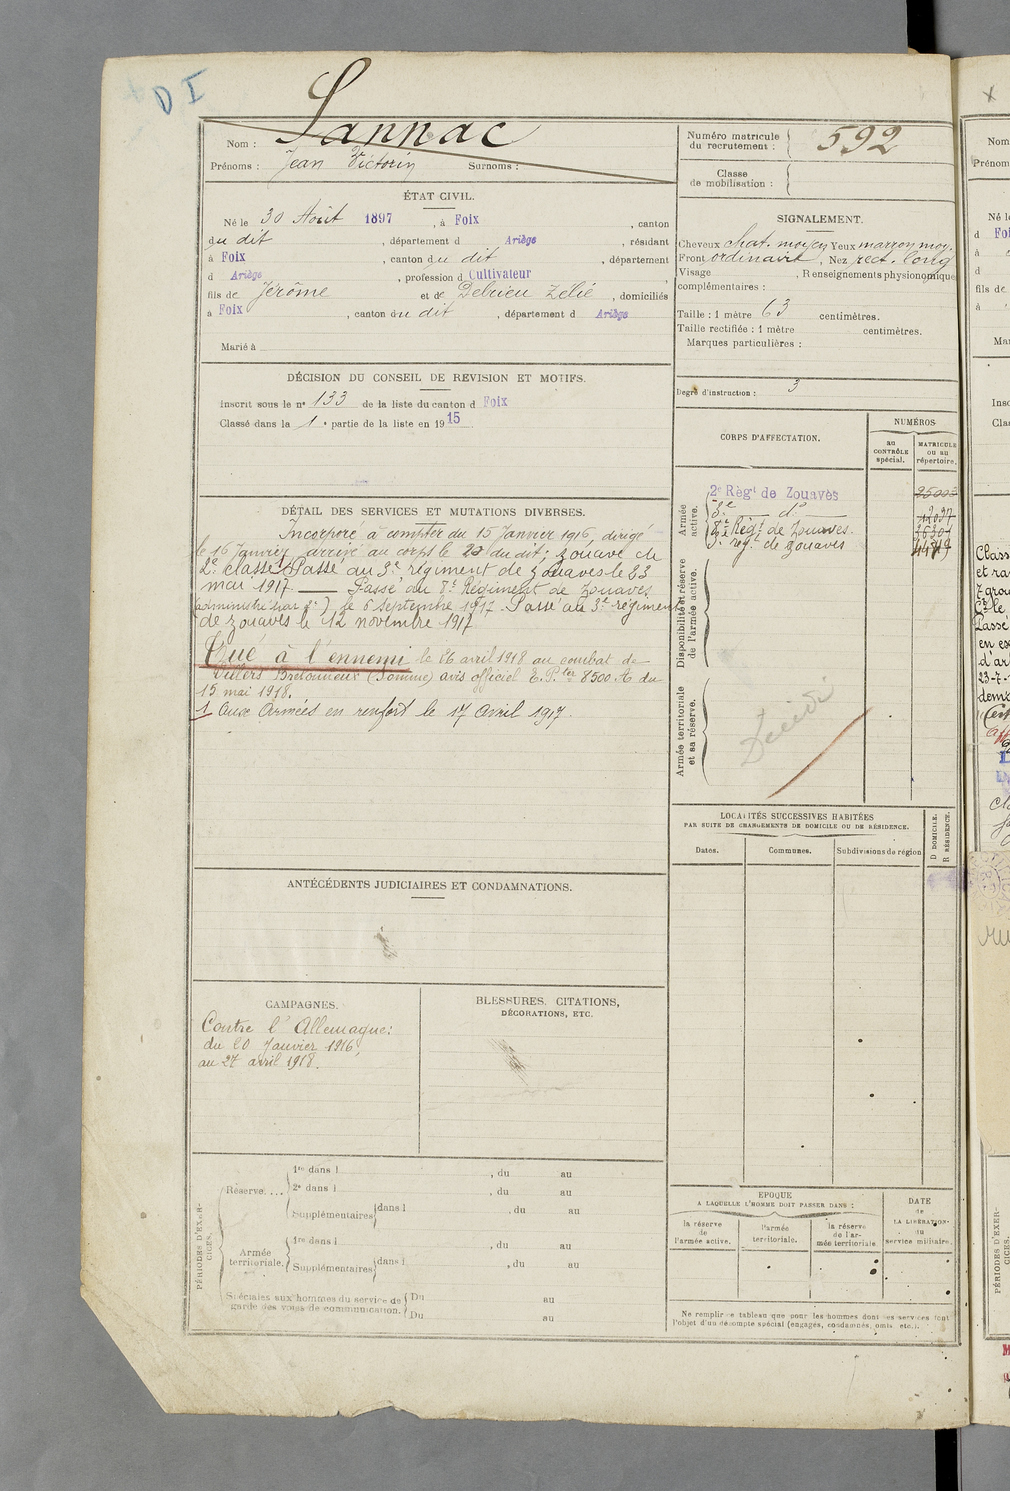 D I
Lannac
Nom :
Prénoms : Jean Victorin Surnoms :
Numéro matricule
du recrutement : 592
Classe
de mobilisation :
ÉTAT CIVIL.
Né le 30 Août 1897, à Foix, canton
du dit, département d Ariège, résidant
à Foix, canton du dit, département
d Ariège, profession d Cultivateur
fils de Jérôme et de Debrieu Zélie, domiciliés
à Foix, canton du dit, département d Ariège
Marié à
SIGNALEMENT.
Cheveux chat. moyen Yeux marron moy.
Front ordinaire, Nez rect. long
Visage, Renseignements physionomiques
complémentaires :
Taille : 1 mètre 63 centimètres.
Taille rectifiée : 1 mètre centimètres.
Marques particulières :
Degré d'instruction : 3
DÉCISION DU CONSEIL DE REVISION ET MOTIFS.
Inscrit sous le nº 133 de la liste du canton d Foix
Classé dans la 1e partie de la liste en 1915
DÉTAIL DES SERVICES ET MUTATIONS DIVERSES.
Incorporé à compter du 15 Janvier 1916, dirigé
le 16 Janvier, arrivé au corps le 20 du dit; zouave de
2e classe. Passé au 3e régiment de zouaves le 23
mai 1917 — Passé au 8e Régiment de Zouaves
(administré par 2e), le 6 septembre 1917. Passé au 3e régiment
de zouaves le 12 novembre 1917
Tué à l'ennemi le 26 avril 1918 au combat de
Villers Bretonneux (Somme) avis officiel 8500 du
15 mai 1918.
1 Aux Armées en renfort le 17 Avril 1917.
CORPS D'AFFECTATION.
NUMÉROS
au
CONTRÔLE
spécial.
MATRICULE
ou au
répertoire.
Armée
active.
2e Régt de Zouaves
3e — do —
8e Régt de Zouaves.
3e régt. de zouaves
Disponibilité et réserve
de l'armée active.
Armée territoriale
et sa réserve.
Décédé
LOCALITÉS SUCCESSIVES HABITÉES
PAR SUITE DE CHANGEMENTS DE DOMICILE OU DE RÉSIDENCE.
Dates.
Communes.
Subdivisions de région
D DOMICILE.
R RÉSIDENCE.
ANTÉCÉDENTS JUDICIAIRES ET CONDAMNATIONS.
CAMPAGNES.
Contre l'Allemagne:
du 20 Janvier 1916,
au 27 avril 1918.
BLESSURES, CITATIONS,
DÉCORATIONS, ETC.
PÉRIODES D'EXER-
CICES.
Réserve....
1re dans l , du au
2e dans l , du au
Supplémentaires dans l , du au
Armée
territoriale.
1re dans l , du au
Supplémentaires dans l , du au
Spéciales aux hommes du service de
garde des voies de communication.
Du au
Du au
EPOQUE
A LAQUELLE L'HOMME DOIT PASSER DANS :
la réserve
de
l'armée active.
l'armée
territoriale.
la réserve
de l'ar-
mée territoriale.
DATE
de
LA LIBÉRATION
du
service militaire.
Ne remplir ce tableau que pour les hommes dont les services font
l'objet d'un décompte spécial (engagés, condamnés, omis, etc.).